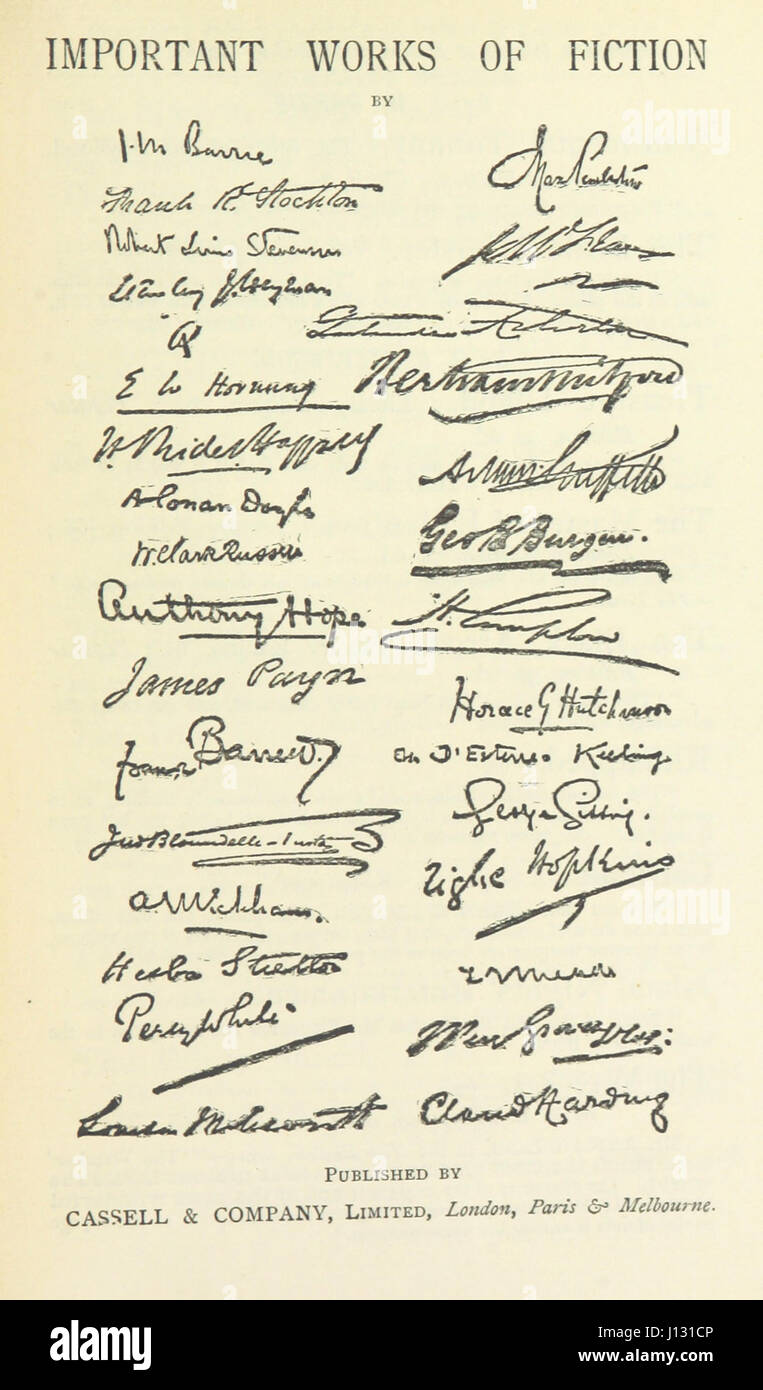 IMPORTANT WORKS OF FICTION
BY
J. M. Barrie
Max Pemberton
Frank R. Stockton
Robert Louis Stevenson
Stanley J. Weyman
Q
Gertrude Atherton
E W Hornung
Bertram Mitford
H. Rider Haggard
Arthur Griffiths
A Conan Doyle
Geo B Burgin.
W. Clark Russell
Anthony Hope
H. Compton
James Payn
Horace G Hutchinson
Frank Barrett.
D'Esterre Keeling
George Gissing.
Jno Bloundelle-Burton
Tighe Hopkins
Hesba Stretton
Percy White
Louisa Molesworth
Claud Harding
PUBLISHED BY
CASSELL & COMPANY, LIMITED, London, Paris & Melbourne.
alamy
alamy
alamy
alamy
Image ID: J131CP
www.alamy.com